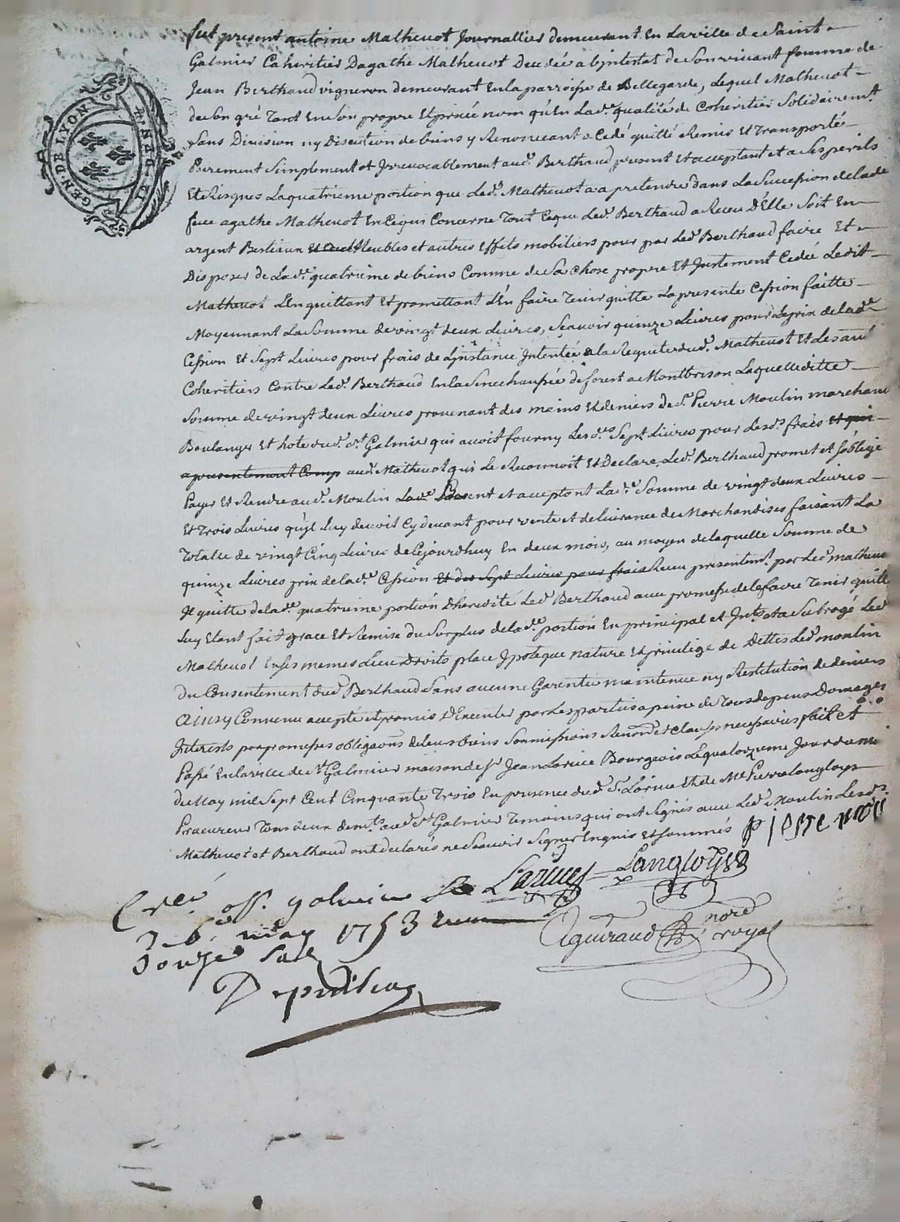 GEN DE LYON
fut present antoine Matheuot Journallier demeurant En Laville de Saint
Galmier Coheritier Dagathe Matheuot Decedée abintestat de Sonvivant femme de
Jean Berthaud vigneron demeurant En la parroisse de Bellegarde, Lequel Matheuot
de bon gré Tant en Son propre Et privée nom qu'En Lad.e qualité de Coheritier Solidairem.t
Sans Division ny Discution de biens y Renoncant a Cedé quitté Remis Et Transporté
Purement Simplement et Irrevocablement aud. Berthaud present Et acceptant et a Ses perils
Et Risques La quatrieme portion que Led. Matheuot a a pretendre dans La Succession de lade
feue agathe Matheuot En Ce qui Concerne Tout Ceque Led. Berthaud a Receu D'Elle Soit En
argent Bestieux Meubles et autres Effets mobiliers pour par Led. Berthaud faire Et
Disposer de Lad.e quatrieme de biens Comme de Sa chose propre Et Justement Cedée Ledit
Matheuot L'En quittant Et promettant L'En faire Tenir quitte La presente Cession faitte
Moyennant La Somme de vingt deux Livres, Scavoir quinze Livres pour Le prix de lad.e
Cession Et Sept Livres pour frais de L'jnstance Intentée a la Requete dud. Matheuot Et de Ses autres
Coheritiers Contre Led. Berthaud En la Senechaussée de forest a Montbrison Laquelle ditte
Somme de vingt deux Livres provenant des mains Et deniers de S.r Pierre Moulin marchand
Boulanger Et hote dud. St Galmier qui avoit fourny Les d.es Sept Livres pour Les d.s frais et qui
apresentement Comp aud. Matheuot qui Le Reconnoit Et Declare, Led. Berthaud promet et s'oblige
Payer Et Rendre aud. Moulin present et acceptant Lad.e Somme de vingt deux Livres
Et Trois Livres qu'jl Luy devoit Cy devant pour vente et delivrance de Marchandises faisant La
Totalle de vingt Cinq Livres de Cejourdhuy En deux mois, au moyen de laquelle Somme de
quinze Livres prix de lad.e Cession Et des Sept Livres pour frais Receu presentem.t par Led. matheuot
Il quitte de lad.e quatrieme portion D'heredité Led. Berthaud avec promesse de le faire Tenir quitte
Luy Etant fait grace Et Remise du Surplus de lad.e portion En principal et Int.s et a Subrogé Led.
Matheuot En Ses memes Lieu Droits place jpoteque nature Et privilege de Dettes Led. moulin
Du Consentement dud. Berthaud Sans aucune Garentie maintenue ny Restitution de deniers
Ainsy Convenu accepté et promis D'Executer par Les parties a peine de Tous depens Domages
Interets par promesses obligaons de leurs biens Soumissions Renond. et clauses necessaires fait et
Passé En la ville de St Galmier maison de Sr Jean Bourgeois Le quatorzieme Jour du mois
de May mil Sept Cent Cinquante Trois En presence dud. Sr Et de Me Pierre Langloys
Procureur Tous deux dem.ts aud. St Galmier Temoins qui ont Signés avec Led. Moulin Les d.s
Matheuot et Berthaud ont declarés ne Scavoir Signer Enquis et Sommés pierre moulin
Langloys
galmier
may 1753
douze Sols
not.e royal